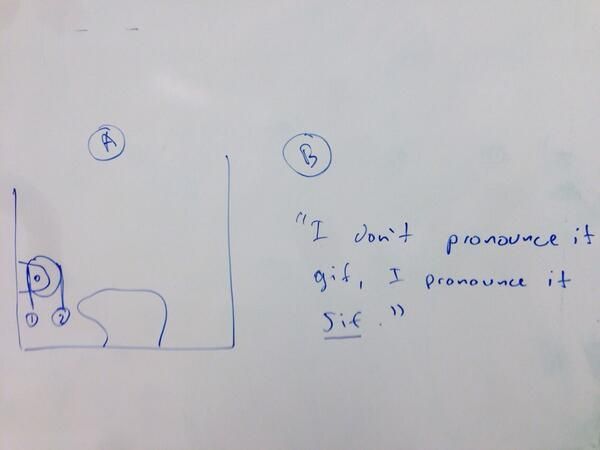 A
B
"I don't pronounce it
gif, I pronounce it
1 2